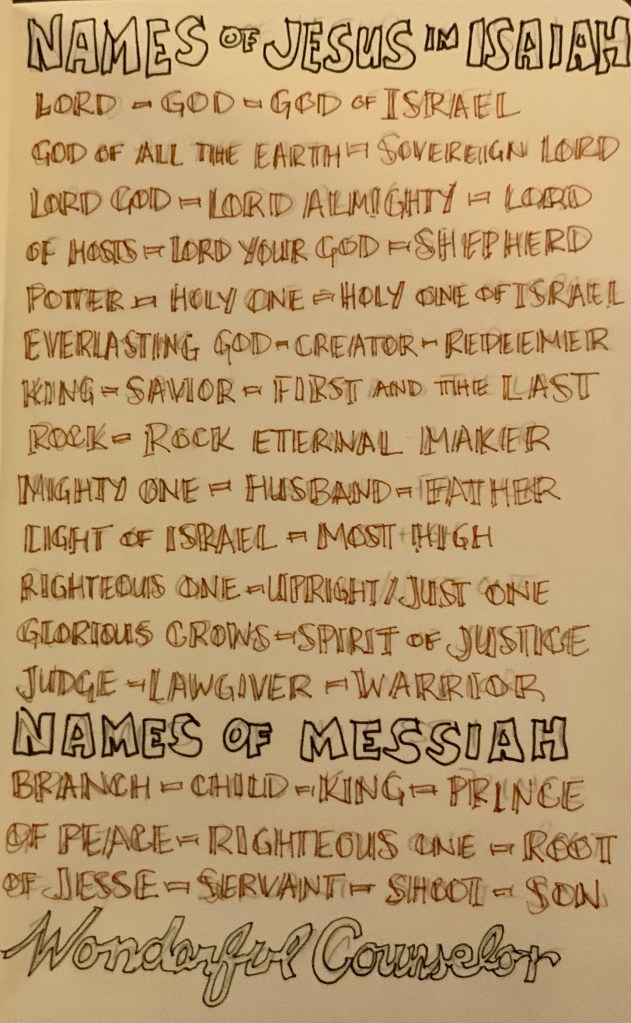 NAMES OF JESUS IN ISAIAH
LORD - GOD - GOD OF ISRAEL
GOD OF ALL THE EARTH - SOVEREIGN LORD
LORD GOD - LORD ALMIGHTY - LORD
OF HOSTS - LORD YOUR GOD - SHEPHERD
POTTER - HOLY ONE - HOLY ONE OF ISRAEL
EVERLASTING GOD - CREATOR - REDEEMER
KING - SAVIOR - FIRST AND THE LAST
ROCK - ROCK ETERNAL MAKER
MIGHTY ONE - HUSBAND - FATHER
LIGHT OF ISRAEL - MOST HIGH
RIGHTEOUS ONE - UPRIGHT/JUST ONE
GLORIOUS CROWS - SPIRIT OF JUSTICE
JUDGE - LAWGIVER - WARRIOR
NAMES OF MESSIAH
BRANCH - CHILD - KING - PRINCE
OF PEACE - RIGHTEOUS ONE - ROOT
OF JESSE - SERVANT - SHOOT - SON
Wonderful Counselor